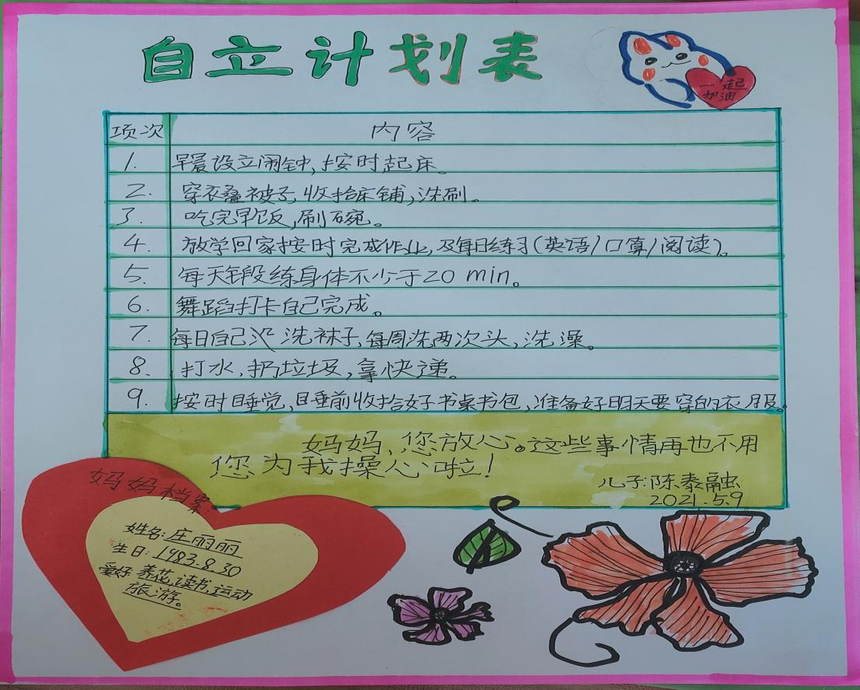 自立计划表
一起
加油
项次 内容
1. 早晨设立闹钟,按时起床。
2. 穿衣叠被子,收拾床铺,洗刷。
3. 吃完早饭,刷碗。
4. 放学回家按时完成作业,及每日练习(英语/口算/阅读)。
5. 每天锻练身体不少于20 min。
6. 舞蹈打卡自己完成。
7. 每日自己洗袜子,每周洗两次头,洗澡。
8. 打水,扔垃圾,拿快递。
9. 按时睡觉,睡前收拾好书桌书包,准备好明天要穿的衣服。
妈妈,您放心。这些事情再也不用
您为我操心啦!
儿子:陈泰融
2021.5.9
妈妈档案
姓名:庄丽丽
生日:1983.8.30
爱好 养花,读书,运动
旅游。